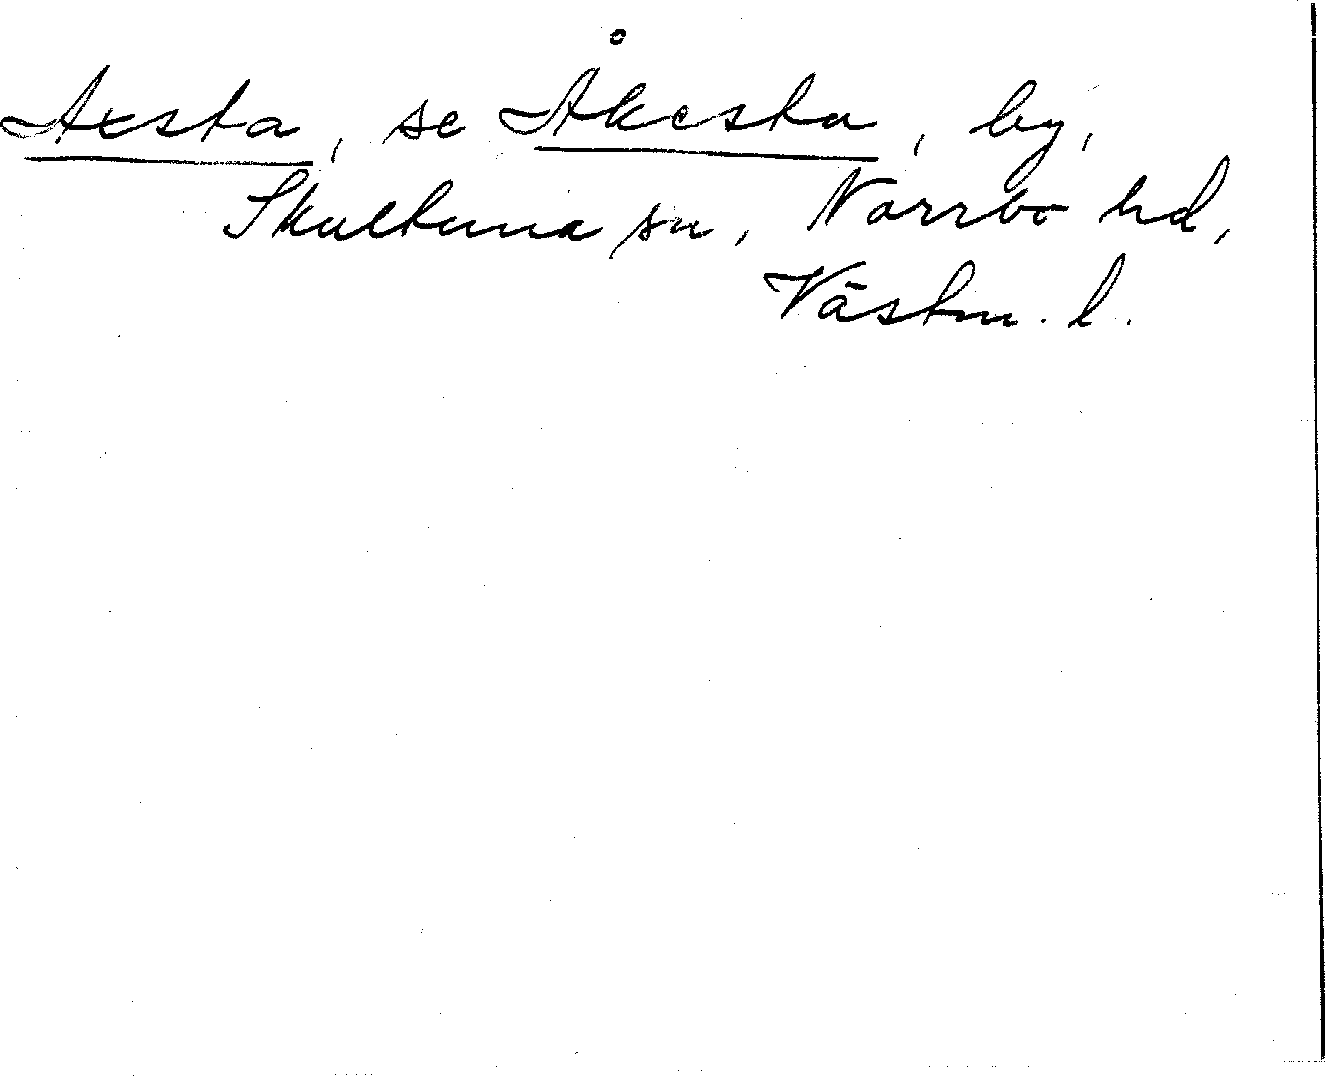 Axsta, se Åkesta, by,
Skultuna sn, Norrbo hd,
Västm. l.